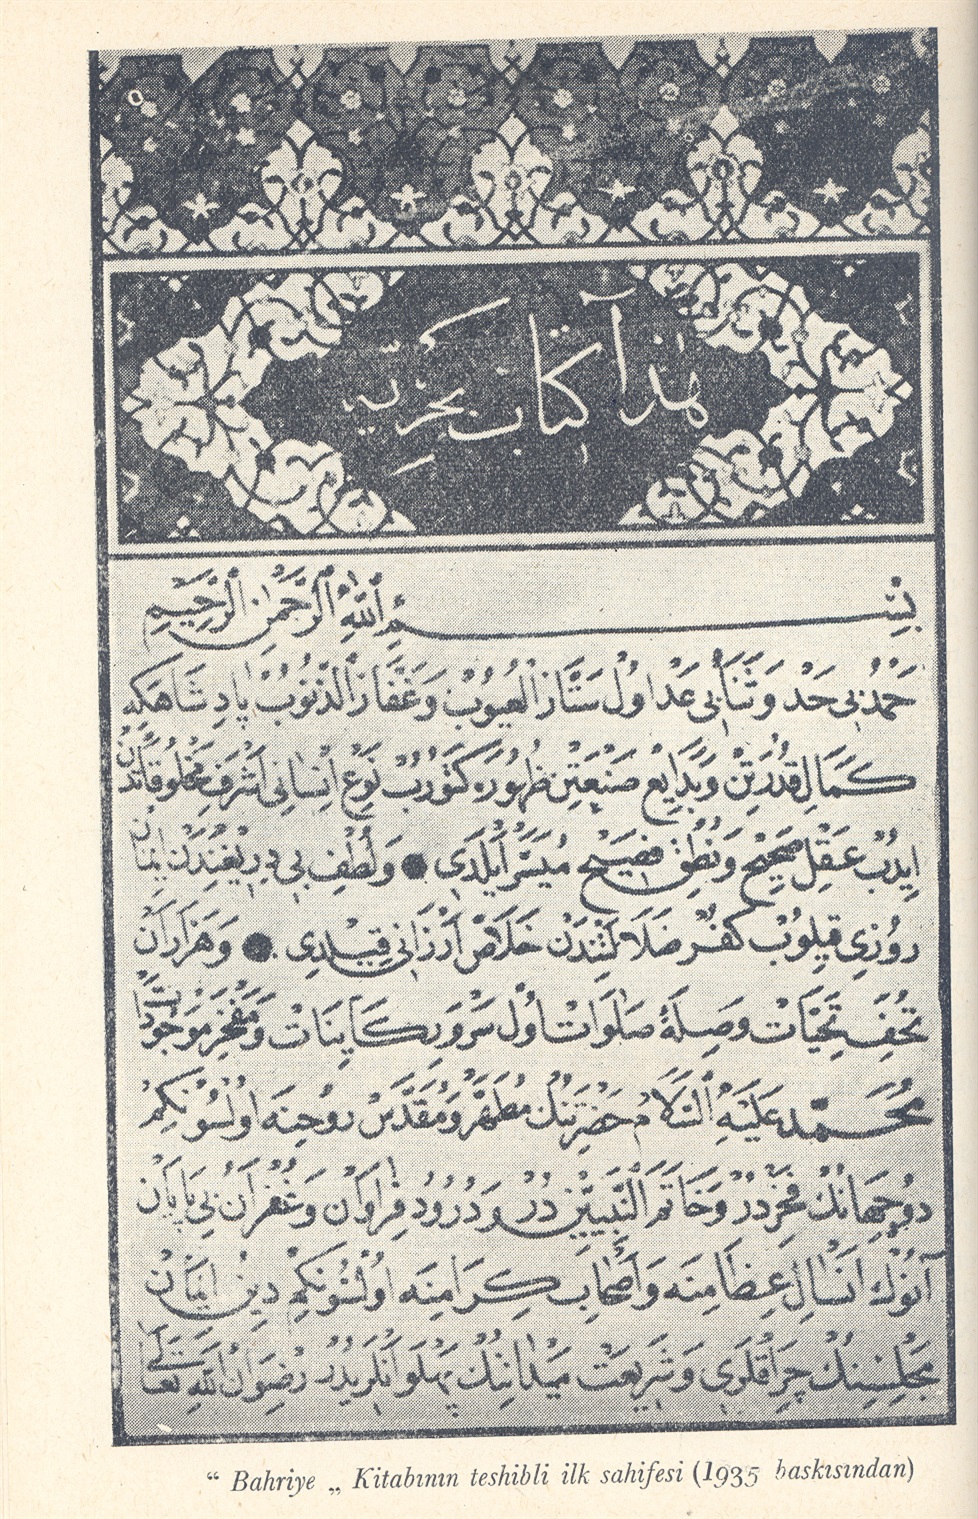 هذا كتاب بحريه
بسم الله الرحمن الرحيم
حمد بى حد و ثناء بى عد اول ستار العيوب و غفار الذنوب پادشاهكه
كمال قدرتن و بدايع صنعتن ظهوره كتورب نوع انسانى اشرف مخلوقاتدن
ايدب عقل صحيح و نطق فصيح ميسر ايلدى ● و لطف بى دريغندن ايمان
روزى قيلوب كفر ضلالتندن خلاص ارزانى قيلدى ● و هزاران
تحف تحيات وصلة صلوات اول سرور كاينات و مفخر موجودات
محمد عليه السلام حضرتنك مطهر و مقدس روحنه اولسونكم
دو جهانك فخردر و خاتم النبييندر و درود فراوان و غفران بى پايان
آنوك انسال عظامنه و اصحاب كرامنه اولسونكم دين ايمان
مجلسنك چراقلرى و شريعت ميداننك پهلوانلريدر رضوان الله تعالى
“ Bahriye „ Kitabının teshibli ilk sahifesi (1935 baskısından)